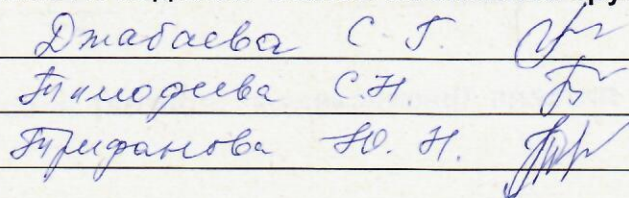 Джабаева С. Г.
Тимофеева С.Н.
Трифанова Ю. Н.